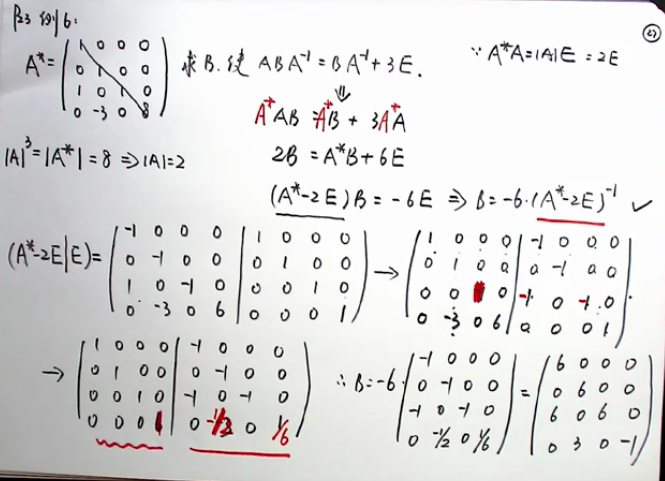 P23 例6:
㉗
A* = ( 1 0 0 0
0 1 0 0
1 0 1 0
0 -3 0 8 ) 求B.使 ABA⁻¹ = BA⁻¹ + 3E.
∵ A*A = |A|E = 2E
⇓
A*AB = A*B + 3A*A
|A|³ = |A*| = 8 ⇒ |A| = 2
2B = A*B + 6E
(A*-2E)B = -6E ⇒ B = -6·(A*-2E)⁻¹ ✓
(A*-2E|E) = ( -1 0 0 0 | 1 0 0 0
0 -1 0 0 | 0 1 0 0
1 0 -1 0 | 0 0 1 0
0 -3 0 6 | 0 0 0 1 )
→ ( 1 0 0 0 | -1 0 0 0
0 1 0 0 | 0 -1 0 0
0 0 1 0 | -1 0 -1 0
0 -3 0 6 | 0 0 0 1 )
→ ( 1 0 0 0 | -1 0 0 0
0 1 0 0 | 0 -1 0 0
0 0 1 0 | -1 0 -1 0
0 0 0 1 | 0 -1/2 0 1/6 )
∴ B = -6· ( -1 0 0 0
0 -1 0 0
-1 0 -1 0
0 -1/2 0 1/6 )
= ( 6 0 0 0
0 6 0 0
6 0 6 0
0 3 0 -1 )